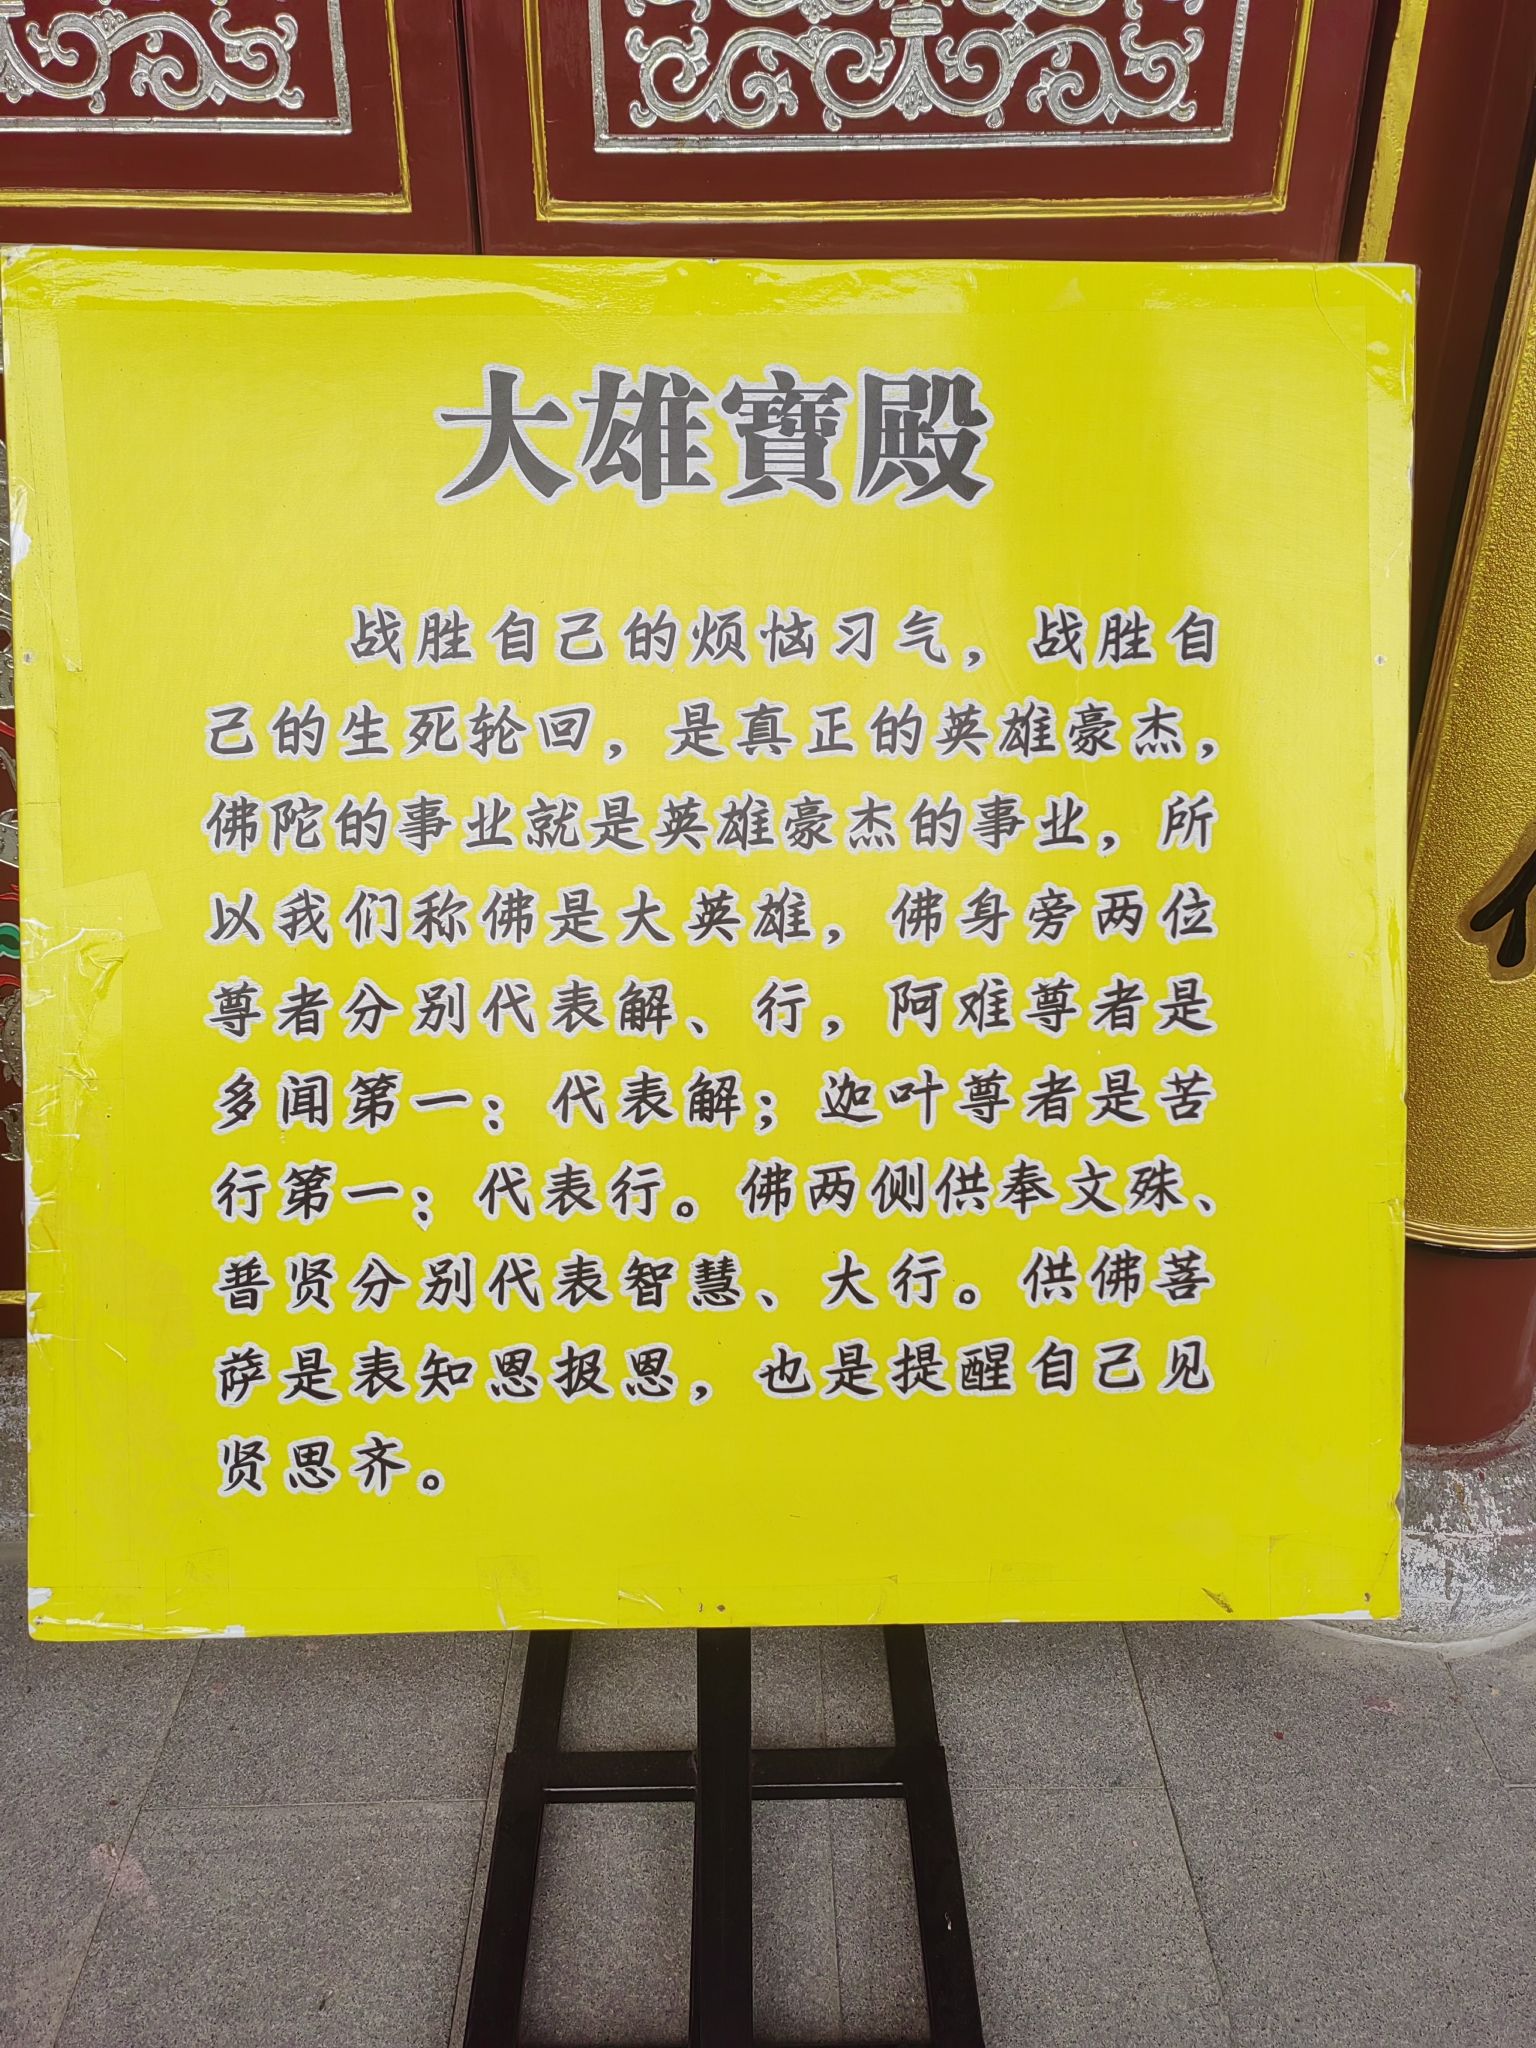 大雄寶殿
战胜自己的烦恼习气，战胜自
己的生死轮回，是真正的英雄豪杰，
佛陀的事业就是英雄豪杰的事业，所
以我们称佛是大英雄，佛身旁两位
尊者分别代表解、行，阿难尊者是
多闻第一；代表解；迦叶尊者是苦
行第一；代表行。佛两侧供奉文殊、
普贤分别代表智慧、大行。供佛菩
萨是表知恩报恩，也是提醒自己见
贤思齐。